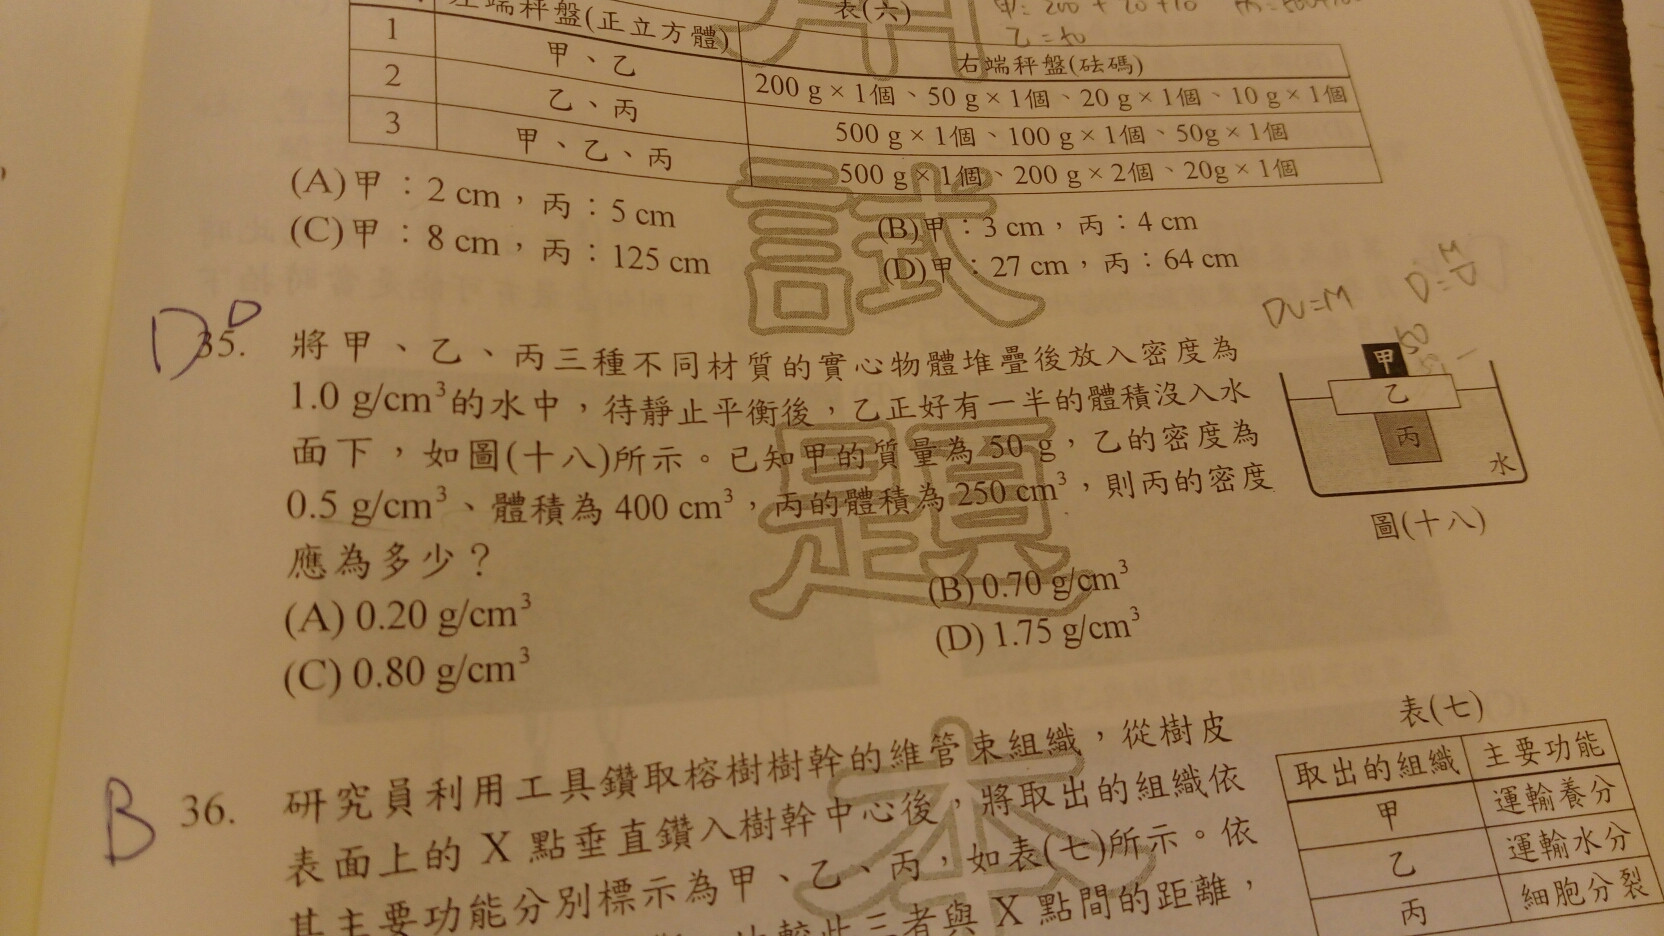 左端秤盤(正立方體)
表(六)
右端秤盤(砝碼)
1 甲、乙 200 g × 1個、50 g × 1個、20 g × 1個、10 g × 1個
2 乙、丙 500 g × 1個、100 g × 1個、50g × 1個
3 甲、乙、丙 500 g × 1個、200 g × 2個、20g × 1個
(A)甲：2 cm，丙：5 cm
(B)甲：3 cm，丙：4 cm
(C)甲：8 cm，丙：125 cm
(D)甲：27 cm，丙：64 cm
DV=M D=M/V
D D
35. 將甲、乙、丙三種不同材質的實心物體堆疊後放入密度為
1.0 g/cm³的水中，待靜止平衡後，乙正好有一半的體積沒入水
面下，如圖(十八)所示。已知甲的質量為 50 g，乙的密度為
0.5 g/cm³、體積為 400 cm³，丙的體積為 250 cm³，則丙的密度
應為多少？
(A) 0.20 g/cm³
(B) 0.70 g/cm³
(C) 0.80 g/cm³
(D) 1.75 g/cm³
甲 50
乙
丙
水
圖(十八)
B
36. 研究員利用工具鑽取榕樹樹幹的維管束組織，從樹皮
表面上的 X 點垂直鑽入樹幹中心後，將取出的組織依
其主要功能分別標示為甲、乙、丙，如表(七)所示。依
較此三者與 X 點間的距離，
表(七)
取出的組織 主要功能
甲 運輸養分
乙 運輸水分
丙 細胞分裂
試題本